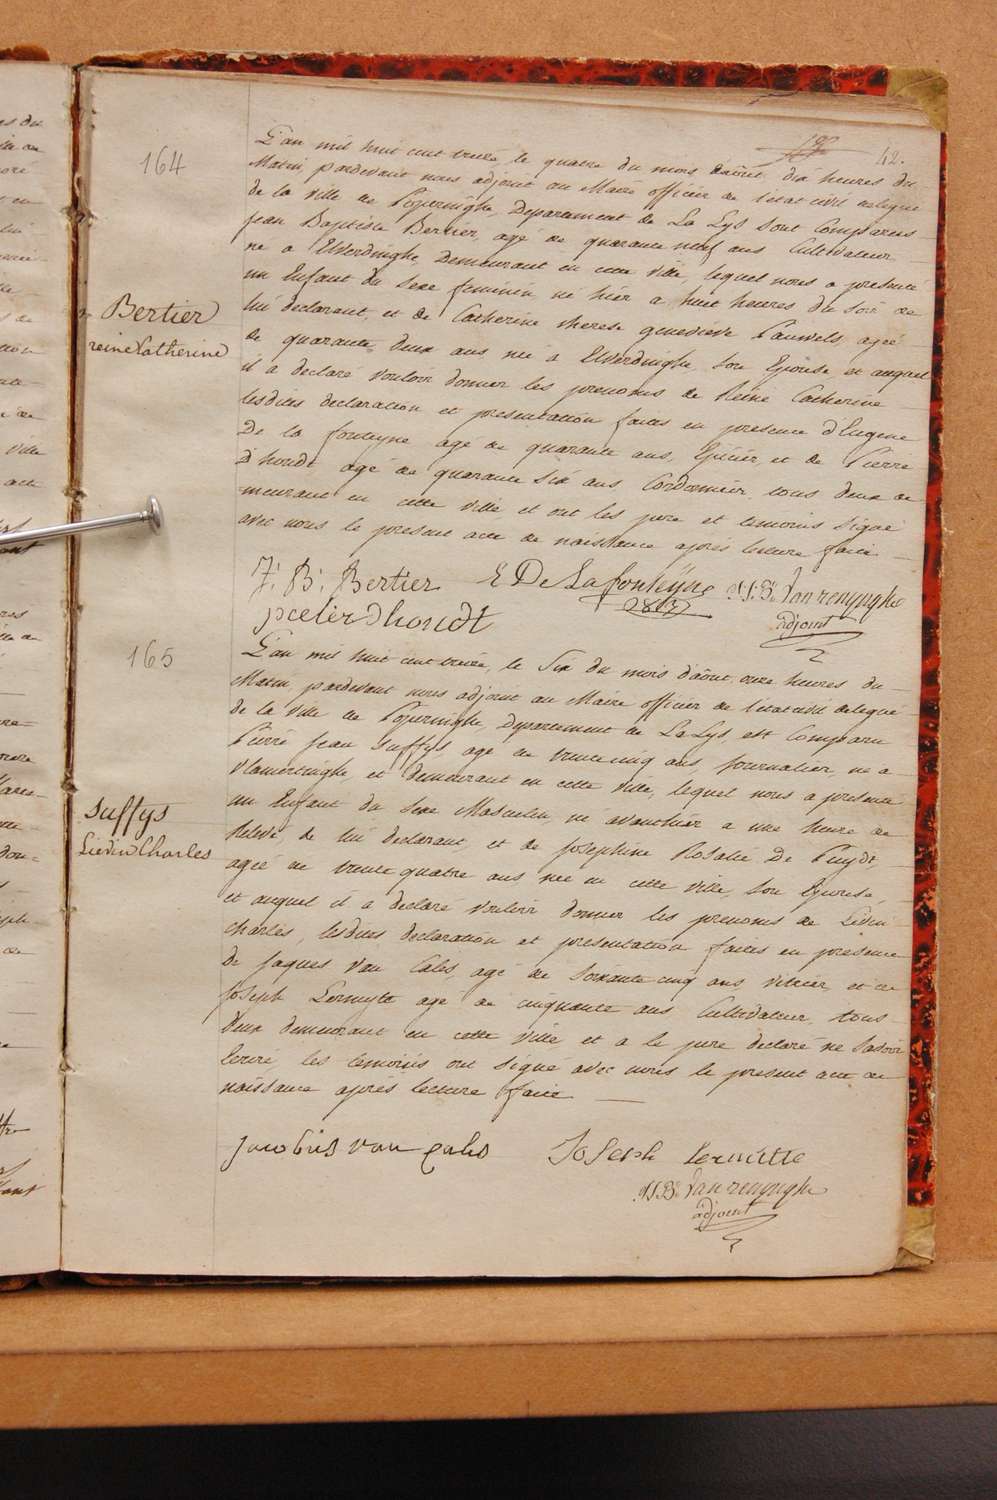 42.
164
L'an mil huit cent treize, le quatre du mois d'août, dix heures du
Matin, pardevant nous adjoint au Maire officier de l'état civil delegué
de la Ville de Poperinghe, Departement de La Lys sont Comparus
Jean Baptiste Bertier, agé de quarante neuf ans Cultivateur
né a Elverdinghe Demeurant en cette ville, lequel nous a presenté
un Enfant du Sexe feminin, né hier a huit heures du Soir de
Bertier
reine Catherine
lui declarant, et de Catherine therese genevieve Pauwels agée
de quarante deux ans née a Elverdinghe, son Epouse, et auquel
il a declaré vouloir donner les prenoms de Reine Catherine
lesdites declaration et presentation faites en presence d'Eugene
De la fonteyne agé de quarante ans, Epicier, et de Pierre
D'hondt agé de quarante Six ans Cordonnier, tous deux de
meurant en cette ville, et ont les pere et temoins signé
avec nous le present acte de naissance après lecture faite
J: B: Bertier E De Lafonteÿne J.B. Vanrenynghe
1813
pieeter Dhondt adjoint
165
L'an mil huit cent treize, le Six du mois d'août, onze heures du
Matin, pardevant nous adjoint au Maire officier de l'état civil delegué
de la Ville de Poperinghe, Departement de La Lys, est Comparu
Pierre Jean Suffys, agé de trente cinq ans journalier, né a
Vlamertinghe, et demeurant en cette Ville, lequel nous a presenté
un Enfant du Sexe Masculin, né avanthier a une heure de
Suffys
Lievin Charles
Relevé, de lui declarant, et de Josephine Rosalie De Puydt,
agée de trente quatre ans née en cette ville, son Epouse,
et auquel il a declaré vouloir donner les prenoms de Liévin
Charles, lesdites declaration et presentation faites en presence
De Jaques Van Cales, agé de soixante cinq ans vitrier, et de
Joseph Lermytte agé de cinquante ans Cultivateur tous
deux demeurant en cette Ville et a le pere declaré ne Savoir
Ecrire, les temoins ont Signé avec nous le present acte de
naissance après lecture faite
Jacobüs van Cales Joseph Lermitte
J.B. Vanrenynghe
adjoint